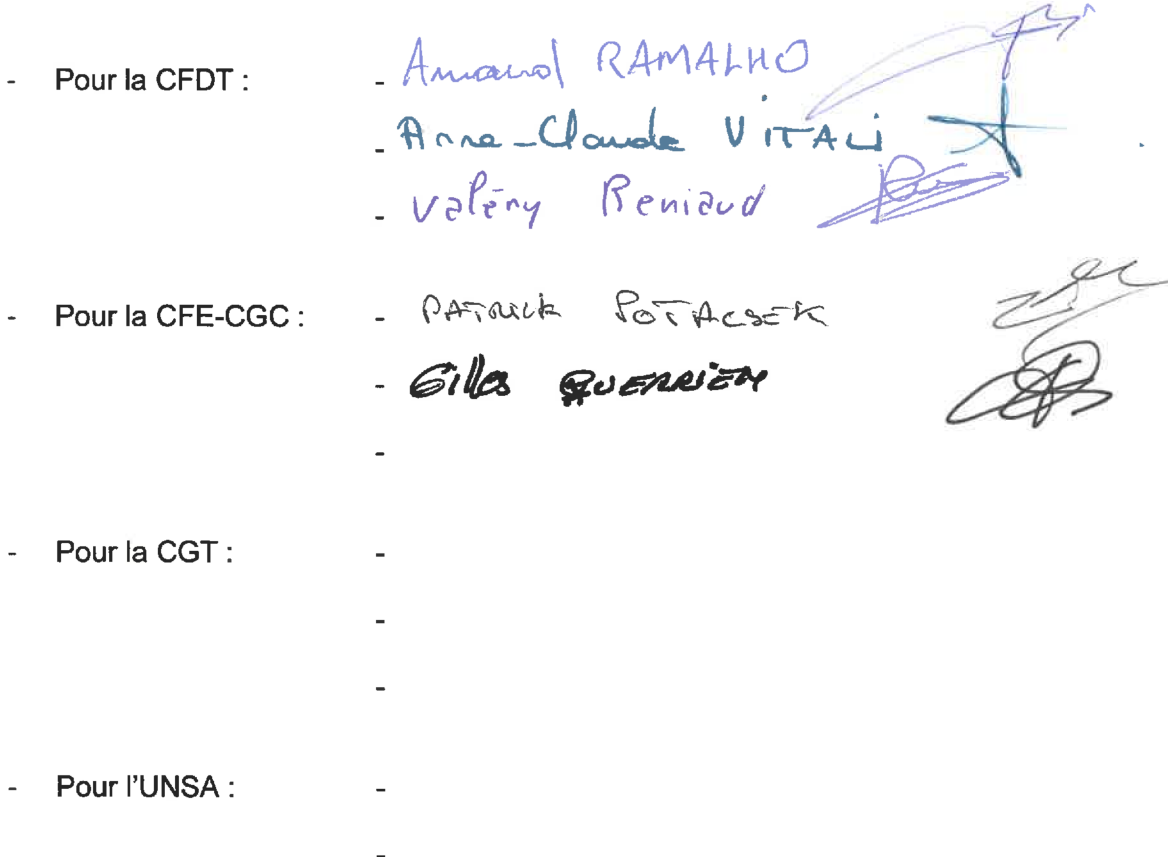 - Pour la CFDT : - Arnaud RAMALHO
- Anne-Claude VITALI
- Valéry Reniaud
- Pour la CFE-CGC : - PATRICK POTACSEK
- Gilles
-
- Pour la CGT : -
-
-
- Pour l'UNSA : -
-